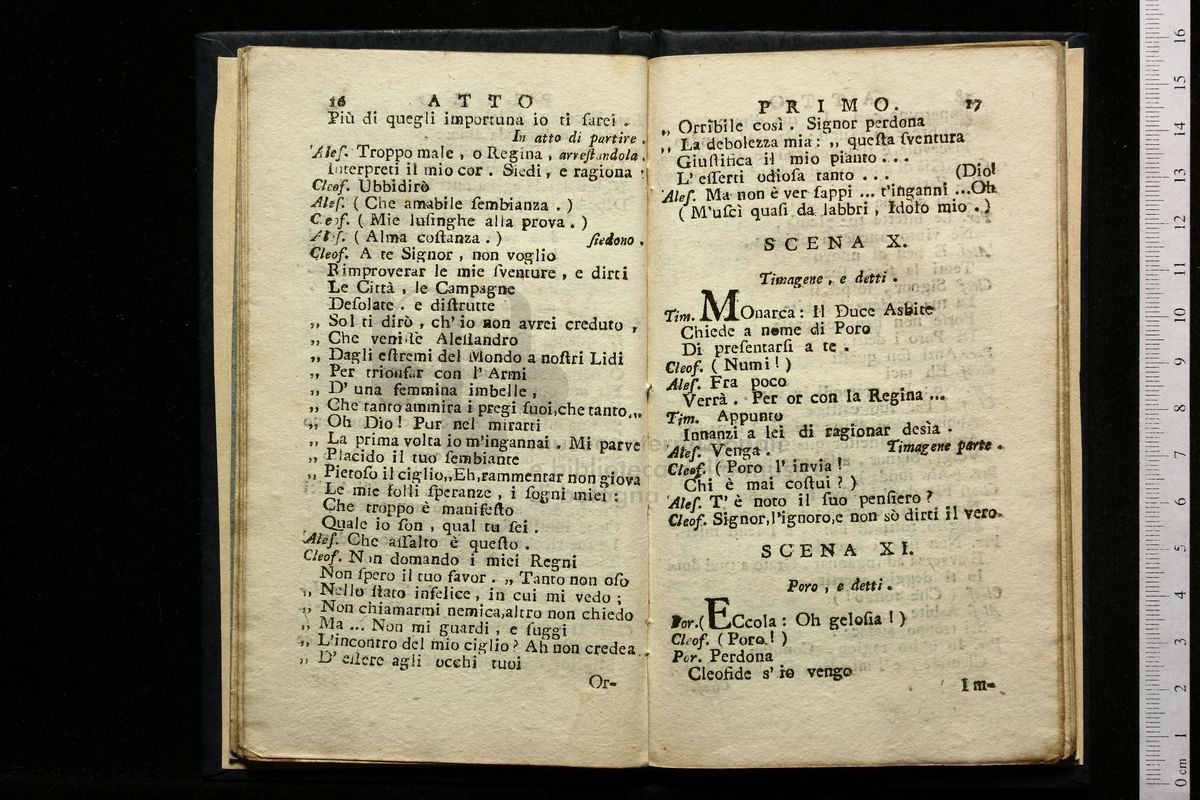 16 ATTO
Più di quegli importuna io ti sarei .
In atto di partire .
Ales. Troppo male , o Regina , arrestandola .
Interpreti il mio cor . Siedi , e ragiona :
Cleof. Ubbidirò
Ales. ( Che amabile sembianza . )
C eof. ( Mie lusinghe alla prova . )
Ales. ( Alma costanza . ) siedono .
Cleof. A te Signor , non voglio
Rimproverar le mie sventure , e dirti
Le Città , le Campagne
Desolate . e distrutte
„ Sol ti dirò , ch' io non avrei creduto ,
„ Che venisse Alessandro
„ Dagli estremi del Mondo a nostri Lidi
„ Per trionfar con l' Armi
„ D' una femmina imbelle ,
„ Che tanto ammira i pregi suoi,che tanto...
„ Oh Dio ! Pur nel mirarti
„ La prima volta io m'ingannai . Mi parve
„ Placido il tuo sembiante
„ Pietoso il ciglio,,Eh,rammentar non giova
Le mie folli speranze , i sogni miei :
Che troppo è manifesto
Quale io son , qual tu sei .
Ales. Che assalto è questo .
Cleof. Non domando i miei Regni
Non spero il tuo favor . „ Tanto non oso
„ Nello stato infelice , in cui mi vedo ;
„ Non chiamarmi nemica,altro non chiedo
„ Ma ... Non mi guardi , e fuggi
„ L'incontro del mio ciglio ? Ah non credea
„ D' essere agli occhi tuoi
Or-
PRIMO. 17
„ Orribile così . Signor perdona
„ La debolezza mia : „ questa sventura
Giustifica il mio pianto . . .
L' esserti odiosa tanto . . . (Dio!
Ales. Ma non è ver sappi ... t'inganni ...Oh
( M'uscì quasi da labbri , Idolo mio . )
SCENA X.
Timagene , e detti .
Tim. MOnarca : Il Duce Asbite
Chiede a nome di Poro
Di presentarsi a te .
Cleof. ( Numi ! )
Ales. Fra poco
Verrà . Per or con la Regina ...
Tim. Appunto
Innanzi a lei di ragionar desìa .
Ales. Venga . Timagene parte .
Cleof. ( Poro l' invia !
Chi è mai costui ? )
Ales. T' è noto il suo pensiero ?
Cleof. Signor,l'ignoro,e non sò dirti il vero.
SCENA XI.
Poro , e detti .
Por. ( ECcola : Oh gelosia ! )
Cleof. ( Poro ! )
Por. Perdona
Cleofide s' io vengo
Im-
0 cm 1 2 3 4 5 6 7 8 9 10 11 12 13 14 15 16